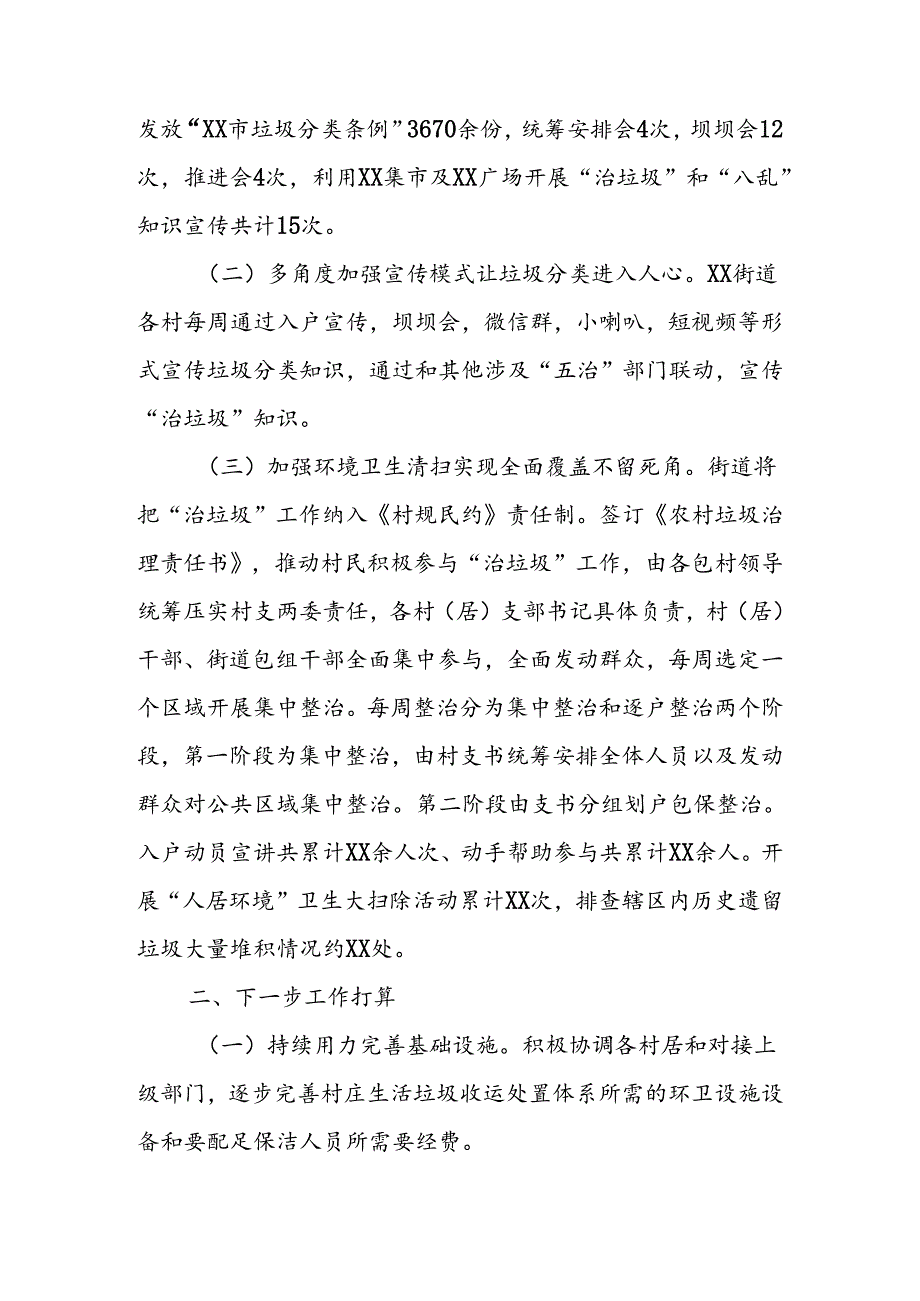 发放“XX市垃圾分类条例”3670余份，统筹安排会4次，坝坝会12
次，推进会4次，利用XX集市及XX广场开展“治垃圾”和“八乱”
知识宣传共计15次。
（二）多角度加强宣传模式让垃圾分类进入人心。XX街道
各村每周通过入户宣传，坝坝会，微信群，小喇叭，短视频等形
式宣传垃圾分类知识，通过和其他涉及“五治”部门联动，宣传
“治垃圾”知识。
（三）加强环境卫生清扫实现全面覆盖不留死角。街道将
把“治垃圾”工作纳入《村规民约》责任制。签订《农村垃圾治
理责任书》，推动村民积极参与“治垃圾”工作，由各包村领导
统筹压实村支两委责任，各村（居）支部书记具体负责，村（居）
干部、街道包组干部全面集中参与，全面发动群众，每周选定一
个区域开展集中整治。每周整治分为集中整治和逐户整治两个阶
段，第一阶段为集中整治，由村支书统筹安排全体人员以及发动
群众对公共区域集中整治。第二阶段由支书分组划户包保整治。
入户动员宣讲共累计XX余人次、动手帮助参与共累计XX余人。开
展“人居环境”卫生大扫除活动累计XX次，排查辖区内历史遗留
垃圾大量堆积情况约XX处。
二、下一步工作打算
（一）持续用力完善基础设施。积极协调各村居和对接上
级部门，逐步完善村庄生活垃圾收运处置体系所需的环卫设施设
备和要配足保洁人员所需要经费。